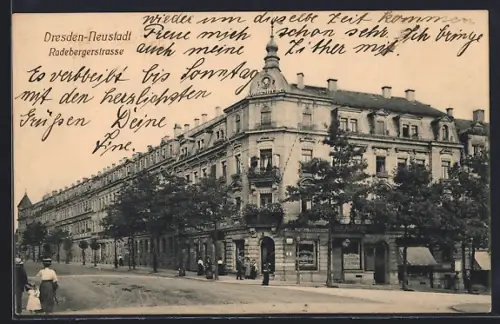 Dresden-Neustadt
Radebergerstrasse
wieder um dieselbe Zeit kommen
Freue mich schon sehr. Ich bringe
auch meine Zither mit.
Es verbleibt bis Sonntag
mit den herzlichsten
Grüßen Deine
Fine.